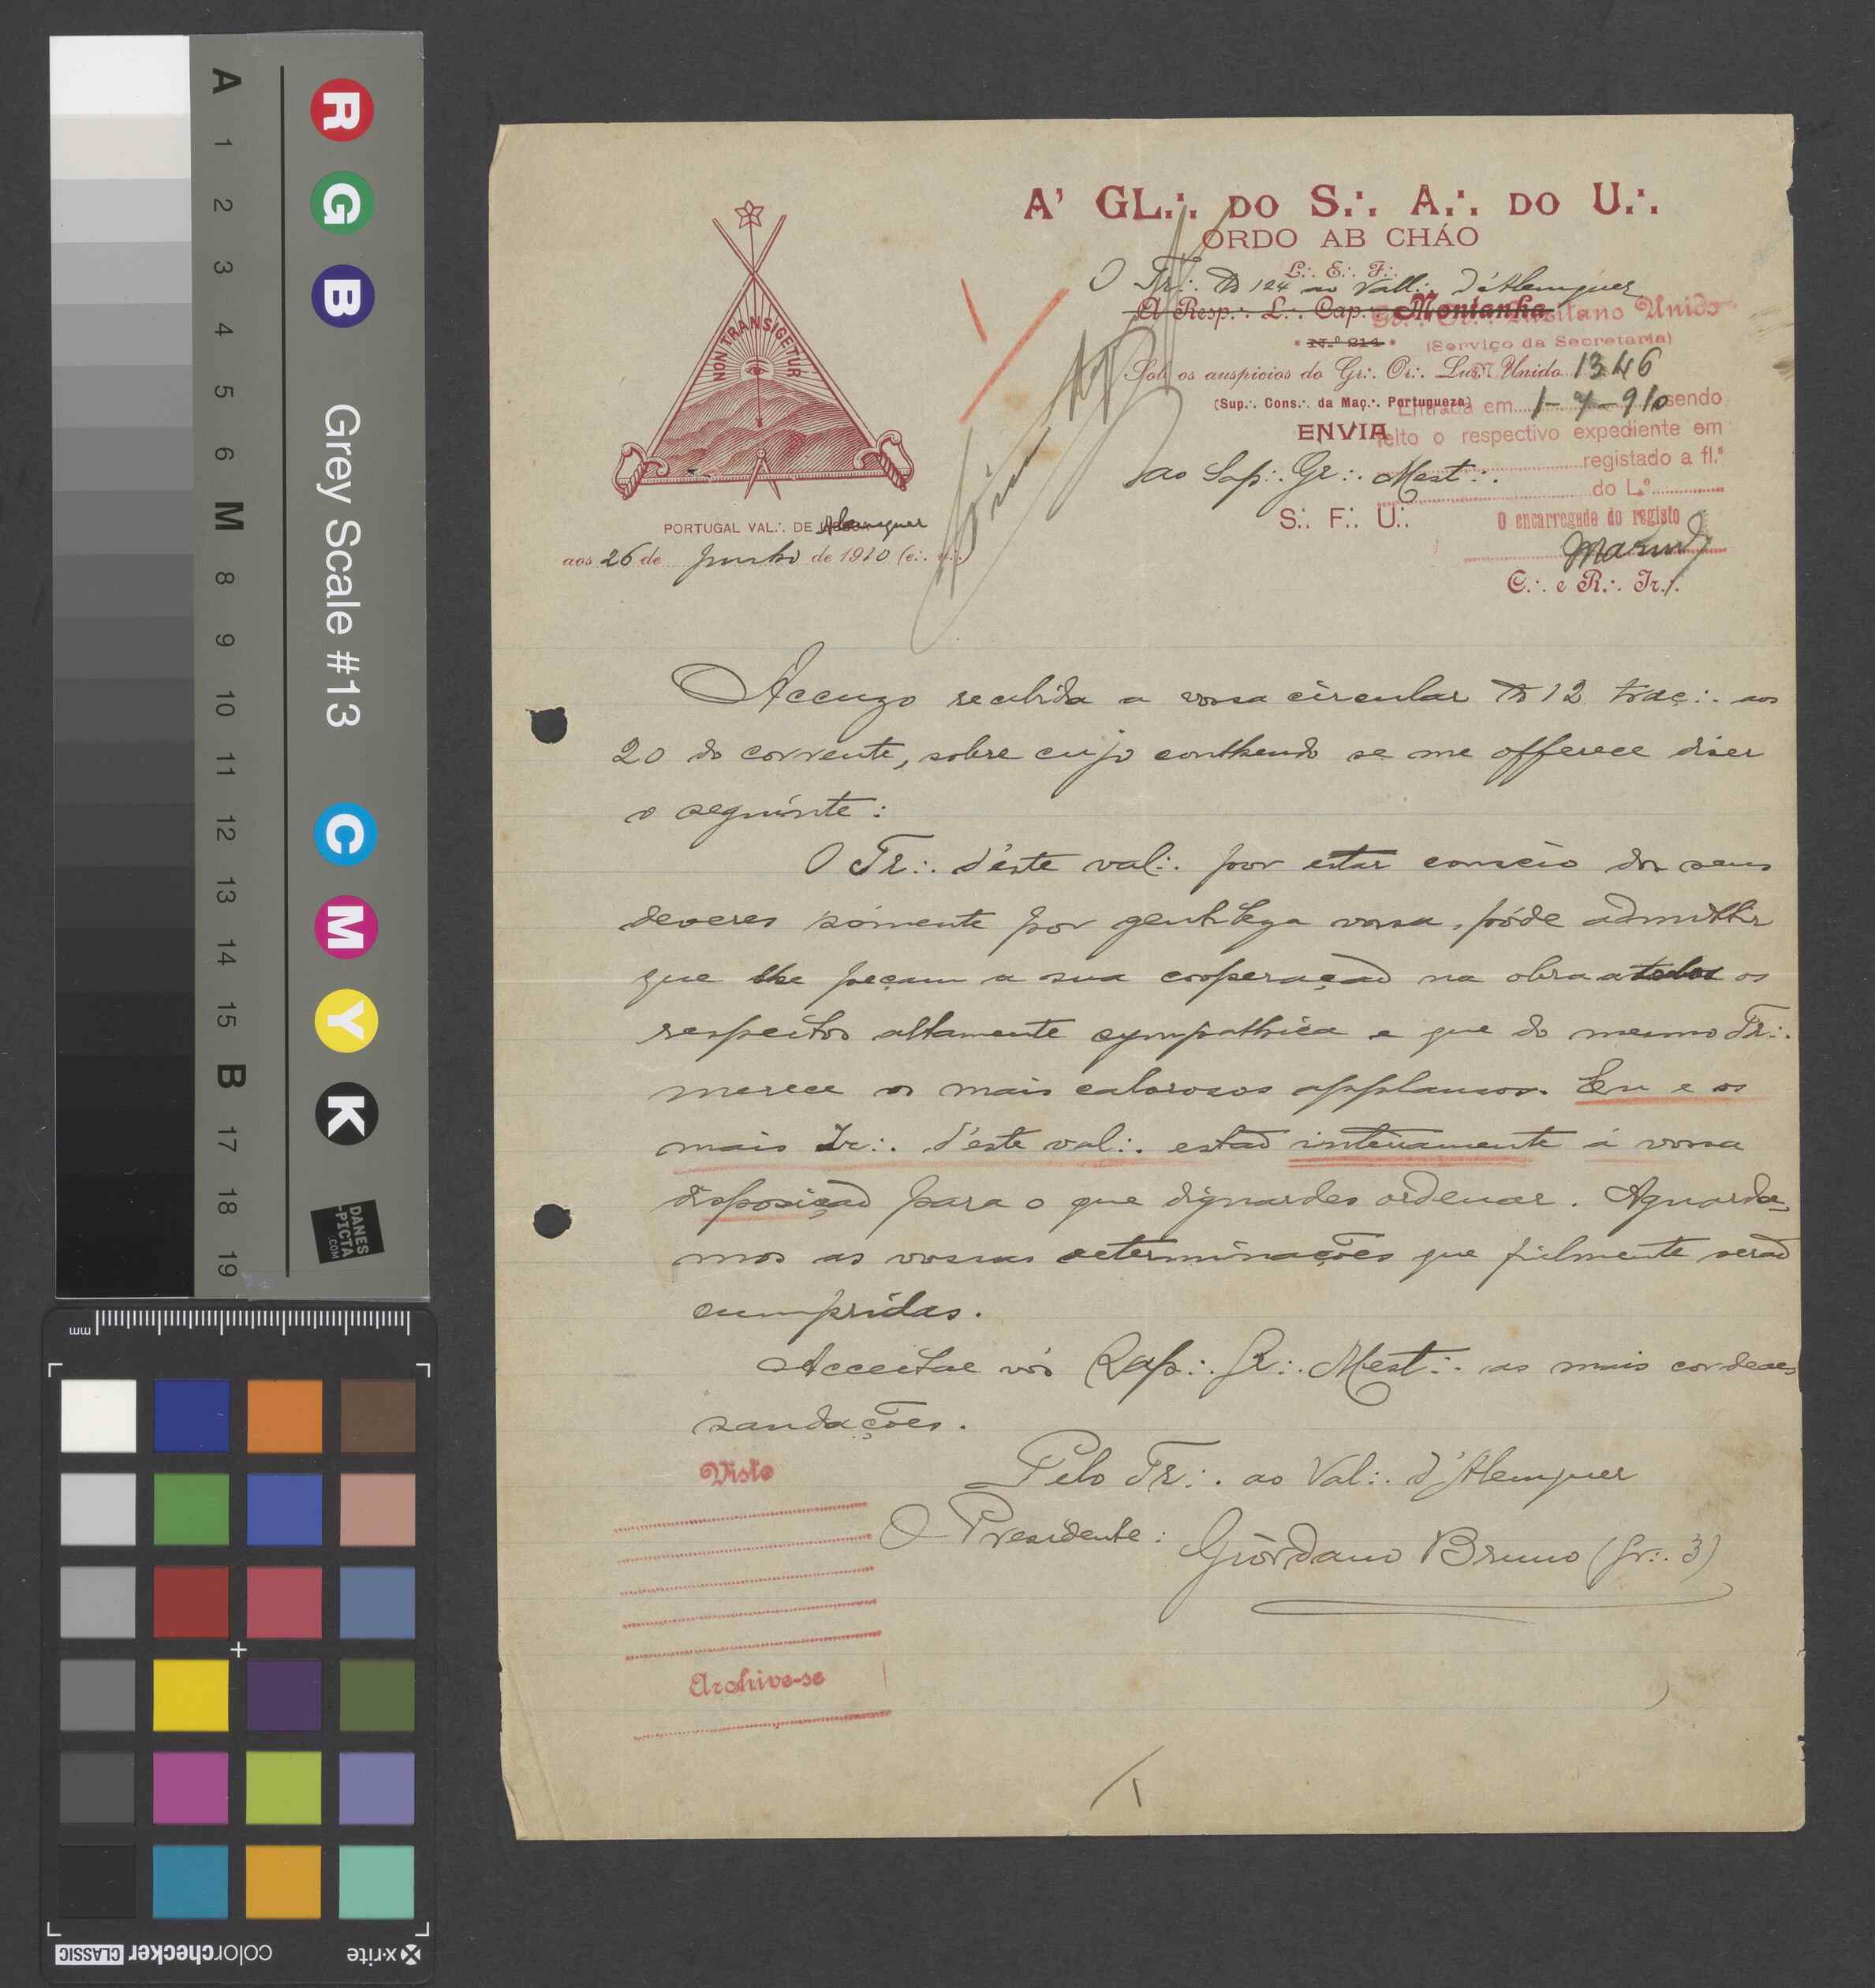 A' GL.'. DO S.'. A.'. DO U.'.
ORDO AB CHÁO
L.'. E.'. F.'.
O Tr.'. No 124 ao Vall.'. d'Alemquer
A Resp.'. L.'. Cap.'. Montanha
N.º 214
Sob os auspicios do Gr.'. Or.'. Lus.'. Unido
(Sup.'. Cons.'. da Maç.'. Portugueza)
ENVIA
ao Sap.'. Gr.'. Mest.'.
S.'. F.'. U.'.
C.'. e R.'. Ir.'.
Lusitano Unido
(Serviço da Secretaria)
1346
Entrada em 1-7-910 sendo
feito o respectivo expediente em
registado a fl.s
do L.º
O encarregado do registo
NON TRANSIGETUR
PORTUGAL VAL.'. DE Alemquer
aos 26 de Junho de 1910 (e.'. v.'.)
Accuzo recebida a vossa circular No 12 traç.'. aos
20 do corrente, sobre cujo conthendo se me offerece diser
o seguinte:
O Tr.'. d'este val.'. por estar conscio dos seus
deveres sómente por gentileza vossa, póde admittir
que lhe peçam a sua cooperação na obra a todos os
respeitos altamente sympathica e que do mesmo Tr.'.
merece os mais calorosos applausos. Eu e os
mais Ir.'. d'este val.'. estão inteiramente á vossa
disposição para o que dignardes ordenar. Aguarda-
mos as vossas determinações que fielmente serão
cumpridas.
Acceitae vós Sap.'. Gr.'. Mest.'. as mais cordeaes
saudações.
Pelo Tr.'. ao Val.'. d'Alemquer
O Presidente: Giordano Bruno (Gr.'. 3)
Visto
Archive-se
A
1
2
3
4
5
6
M
8
9
10
11
12
13
14
15
B
17
18
19
R G B Grey Scale #13 C M Y K
DANES
-PICTA
.COM
mm
x-rite
colorchecker CLASSIC